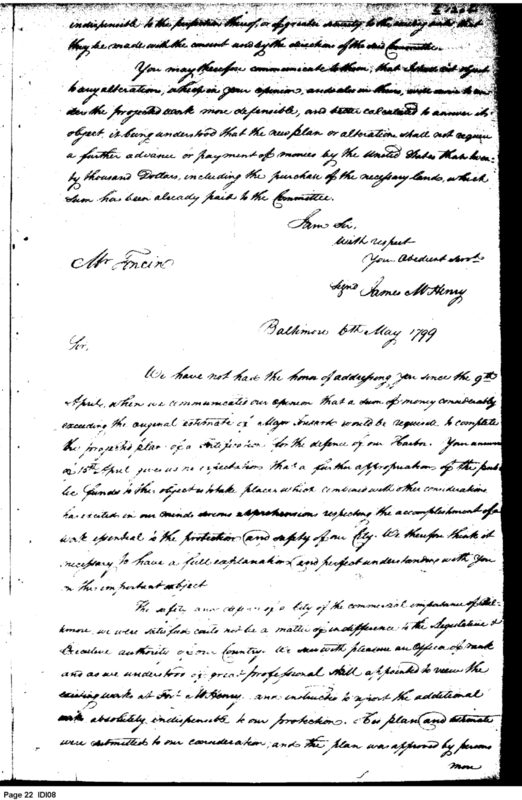 indispensible to the perfection thereof, or of greater security to the existing works that
they be made with the consent and by the direction of the said Committee.
You may therefore communicate to them, that I should not object
to any alterations, which in your opinion, and also in theirs, will serve to ren-
der the projected work more defensible, and better calculated to answer its
object, it being understood that the new plan or alteration shall not require
a further advance or payment of monies by the United States than twen-
ty thousand Dollars, including the purchase of the necessary lands, which
sum has been already paid to the Committee.
I am Sir,
with respect
Your Obedient Servt.
Signd James McHenry
Mr Foncin
Baltimore 6th May 1799
Sir,
We have not had the honor of addressing you since the 9th
April, when we communicated our opinion that a sum of money considerably
exceeding the original estimate of Major Tousard would be required to complete
the projected plan of a fortification for the defence of our Harbor. Your answer
of 15th April gives us no expectations that a further appropriation of the pub-
lic funds to this object is to take place which combined with other considerations
has excited in our minds serious apprehensions respecting the accomplishment of a
work essential to the protection and safety of our City. We therefore think it
necessary to have a full explanation and perfect understanding with you
on this important subject
The safety and defence of a City of the commercial importance of Balt-
imore, we were satisfied could not be a matter of indifference to the Legislative &
Executive authority of our Country. We saw with pleasure an Officer of rank
and as we understood of great professional skill appointed to view the
existing works at Fort McHenry and instructed to report the additional
works absolutely indispensible to our protection. His plan and estimate
were submitted to our consideration, and the plan was approved by persons
more
Page 22 IDI08